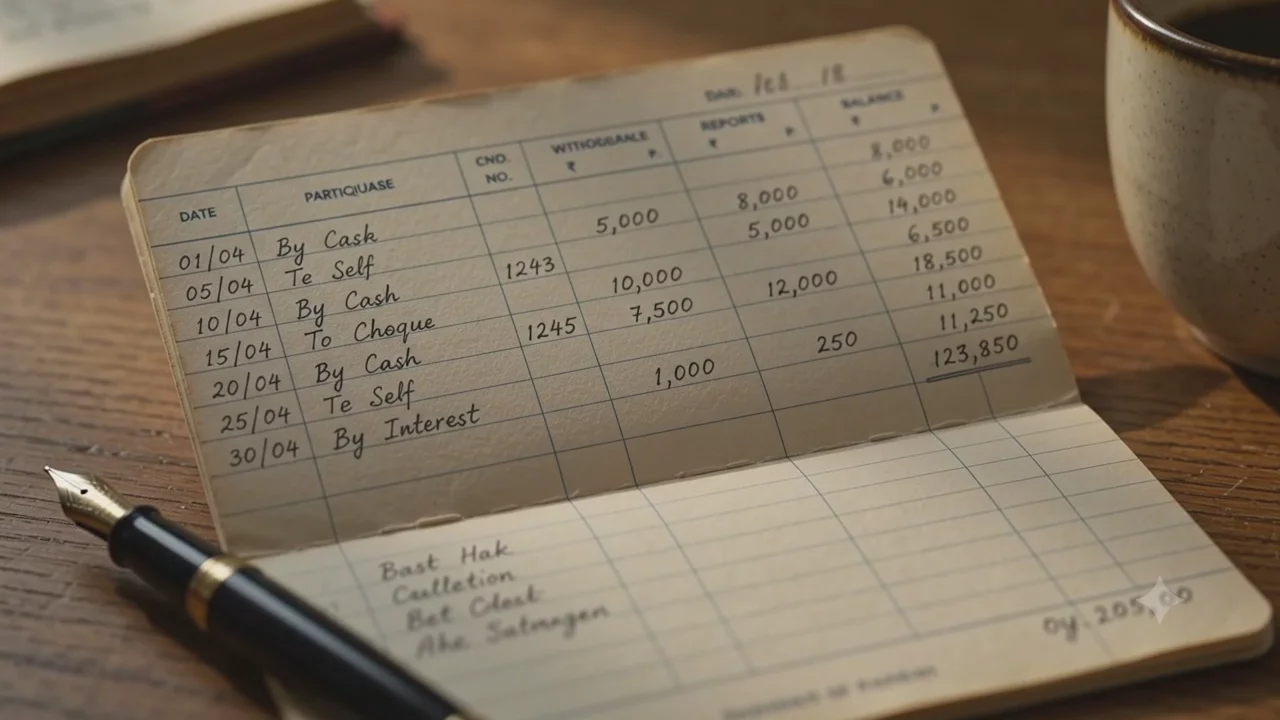 DATE: 18
DATE PARTIQUASE CND. NO. WITHDBRALE ₹ P. REPORTS ₹ P. BALANCE ₹ P.
8,000
01/04 By Cash 8,000 6,000
05/04 Te Self 5,000 5,000 14,000
10/04 By Cash 1243 6,500
15/04 To Choque 10,000 12,000 18,500
20/04 By Cash 1245 7,500 11,000
25/04 Te Self 250 11,250
30/04 By Interest 1,000 123,850
Bast Hak
Caulletion
Bet Cdost
Ahe Satmagen